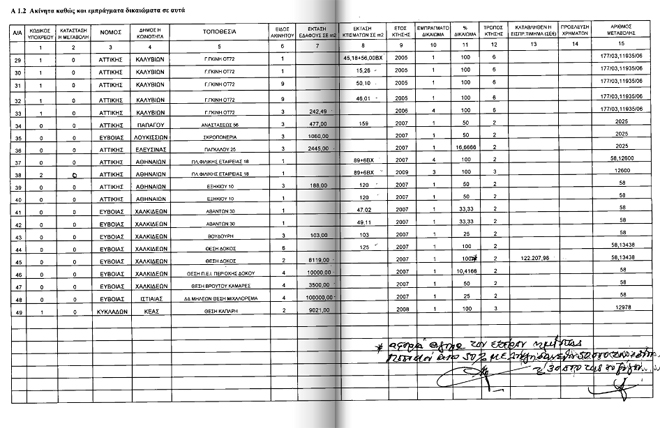 Α 1.2 Ακίνητα καθώς και εμπράγματα δικαιώματα σε αυτά
Α/Α ΚΩΔΙΚΟΣ ΥΠΟΧΡΕΟΥ ΚΑΤΑΣΤΑΣΗ Η ΜΕΤΑΒΟΛΗ ΝΟΜΟΣ ΔΗΜΟΣ Η ΚΟΙΝΟΤΗΤΑ ΤΟΠΟΘΕΣΙΑ ΕΙΔΟΣ ΑΚΙΝΗΤΟΥ ΕΚΤΑΣΗ ΕΔΑΦΟΥΣ ΣΕ m2 ΕΚΤΑΣΗ ΚΤΙΣΜΑΤΩΝ ΣΕ m2 ΕΤΟΣ ΚΤΗΣΗΣ ΕΜΠΡΑΓΜΑΤΟ ΔΙΚΑΙΩΜΑ % ΔΙΚΑΙΩΜΑ ΤΡΟΠΟΣ ΚΤΗΣΗΣ ΚΑΤΑΒΛΗΘΕΝ Η ΕΙΣΠΡ.ΤΙΜΗΜΑ ΠΡΟΕΛΕΥΣΗ ΧΡΗΜΑΤΩΝ ΑΡΙΘΜΟΣ ΜΕΤΑΒΟΛΗΣ
1 2 3 4 5 6 7 8 9 10 11 12 13 14 15
29 1 0 ΑΤΤΙΚΗΣ ΚΑΛΥΒΙΩΝ Γ.ΓΚΙΝΗ ΟΤ72 1 45,18+56,00ΒΧ 2005 1 100 6 177/03,11935/06
30 1 0 ΑΤΤΙΚΗΣ ΚΑΛΥΒΙΩΝ Γ.ΓΚΙΝΗ ΟΤ72 1 15,28 2005 1 100 6 177/03,11935/06
31 1 0 ΑΤΤΙΚΗΣ ΚΑΛΥΒΙΩΝ Γ.ΓΚΙΝΗ ΟΤ72 9 50,10 2005 1 100 6 177/03,11935/06
32 1 0 ΑΤΤΙΚΗΣ ΚΑΛΥΒΙΩΝ Γ.ΓΚΙΝΗ ΟΤ72 9 46,01 2005 1 100 6 177/03,11935/06
33 1 0 ΑΤΤΙΚΗΣ ΚΑΛΥΒΙΩΝ Γ.ΓΚΙΝΗ ΟΤ72 3 242,49 2006 4 100 6 177/03,11935/06
34 0 0 ΑΤΤΙΚΗΣ ΠΑΠΑΓΟΥ ΑΝΑΣΤΑΣΕΩΣ 3 477,00 159 2007 1 50 2 2025
35 0 0 ΕΥΒΟΙΑΣ ΛΟΥΚΙΣΙΩΝ ΣΚΡΟΠΟΝΕΡΙΑ 3 1060,00 2007 1 50 2 2025
36 0 0 ΑΤΤΙΚΗΣ ΕΛΕΥΣΙΝΑΣ ΠΑΓΚΑΛΟΥ 25 3 2445,00 2007 1 16,6666 2 2025
37 0 0 ΑΤΤΙΚΗΣ ΑΘΗΝΑΙΩΝ ΠΛ.ΦΙΛΙΚΗΣ ΕΤΑΙΡΕΙΑΣ 18 1 89+6ΒΧ 2007 4 100 2 58,12600
38 2 0 ΑΤΤΙΚΗΣ ΑΘΗΝΑΙΩΝ ΠΛ.ΦΙΛΙΚΗΣ ΕΤΑΙΡΕΙΑΣ 18 1 89+6ΒΧ 2009 3 100 3 12600
39 0 0 ΑΤΤΙΚΗΣ ΑΘΗΝΑΙΩΝ ΕΞΗΚΙΟΥ 10 3 188,00 120 2007 1 50 2 58
40 0 0 ΑΤΤΙΚΗΣ ΑΘΗΝΑΙΩΝ ΕΞΗΚΙΟΥ 10 1 120 2007 1 50 2 58
41 0 0 ΕΥΒΟΙΑΣ ΧΑΛΚΙΔΕΩΝ ΑΒΑΝΤΩΝ 30 1 47,02 2007 1 33,33 2 58
42 0 0 ΕΥΒΟΙΑΣ ΧΑΛΚΙΔΕΩΝ ΑΒΑΝΤΩΝ 30 1 49,11 2007 1 33,33 2 58
43 0 0 ΕΥΒΟΙΑΣ ΧΑΛΚΙΔΕΩΝ ΒΟΥΔΟΥΡΗ 3 103,00 103 2007 1 25 2 58
44 0 0 ΕΥΒΟΙΑΣ ΧΑΛΚΙΔΕΩΝ ΘΕΣΗ ΔΟΚΟΣ 125 2007 1 100 2 58,13438
45 0 0 ΕΥΒΟΙΑΣ ΧΑΛΚΙΔΕΩΝ ΘΕΣΗ ΔΟΚΟΣ 2 8119,00 2007 1 100* 2 122.207,96 58,13438
46 0 0 ΕΥΒΟΙΑΣ ΧΑΛΚΙΔΕΩΝ ΘΕΣΗ Π.Ε.Ι. ΠΕΡΙΟΧΗΣ ΔΟΚΟΥ 4 10000,00 2007 1 10,4166 2 58
47 0 0 ΕΥΒΟΙΑΣ ΧΑΛΚΙΔΕΩΝ ΘΕΣΗ ΒΡΟΥΤΟΥ ΚΑΜΑΡΕΣ 4 3500,00 2007 1 50 2 58
48 0 0 ΕΥΒΟΙΑΣ ΙΣΤΙΑΙΑΣ ΔΔ ΜΗΛΕΩΝ ΘΕΣΗ ΜΙΧΑΛΟΡΕΜΑ 4 100000,00 2007 1 25 2 58
49 1 0 ΚΥΚΛΑΔΩΝ ΚΕΑΣ ΘΕΣΗ ΚΑΠΑΡΗ 2 9021,00 2008 1 100 3 12978